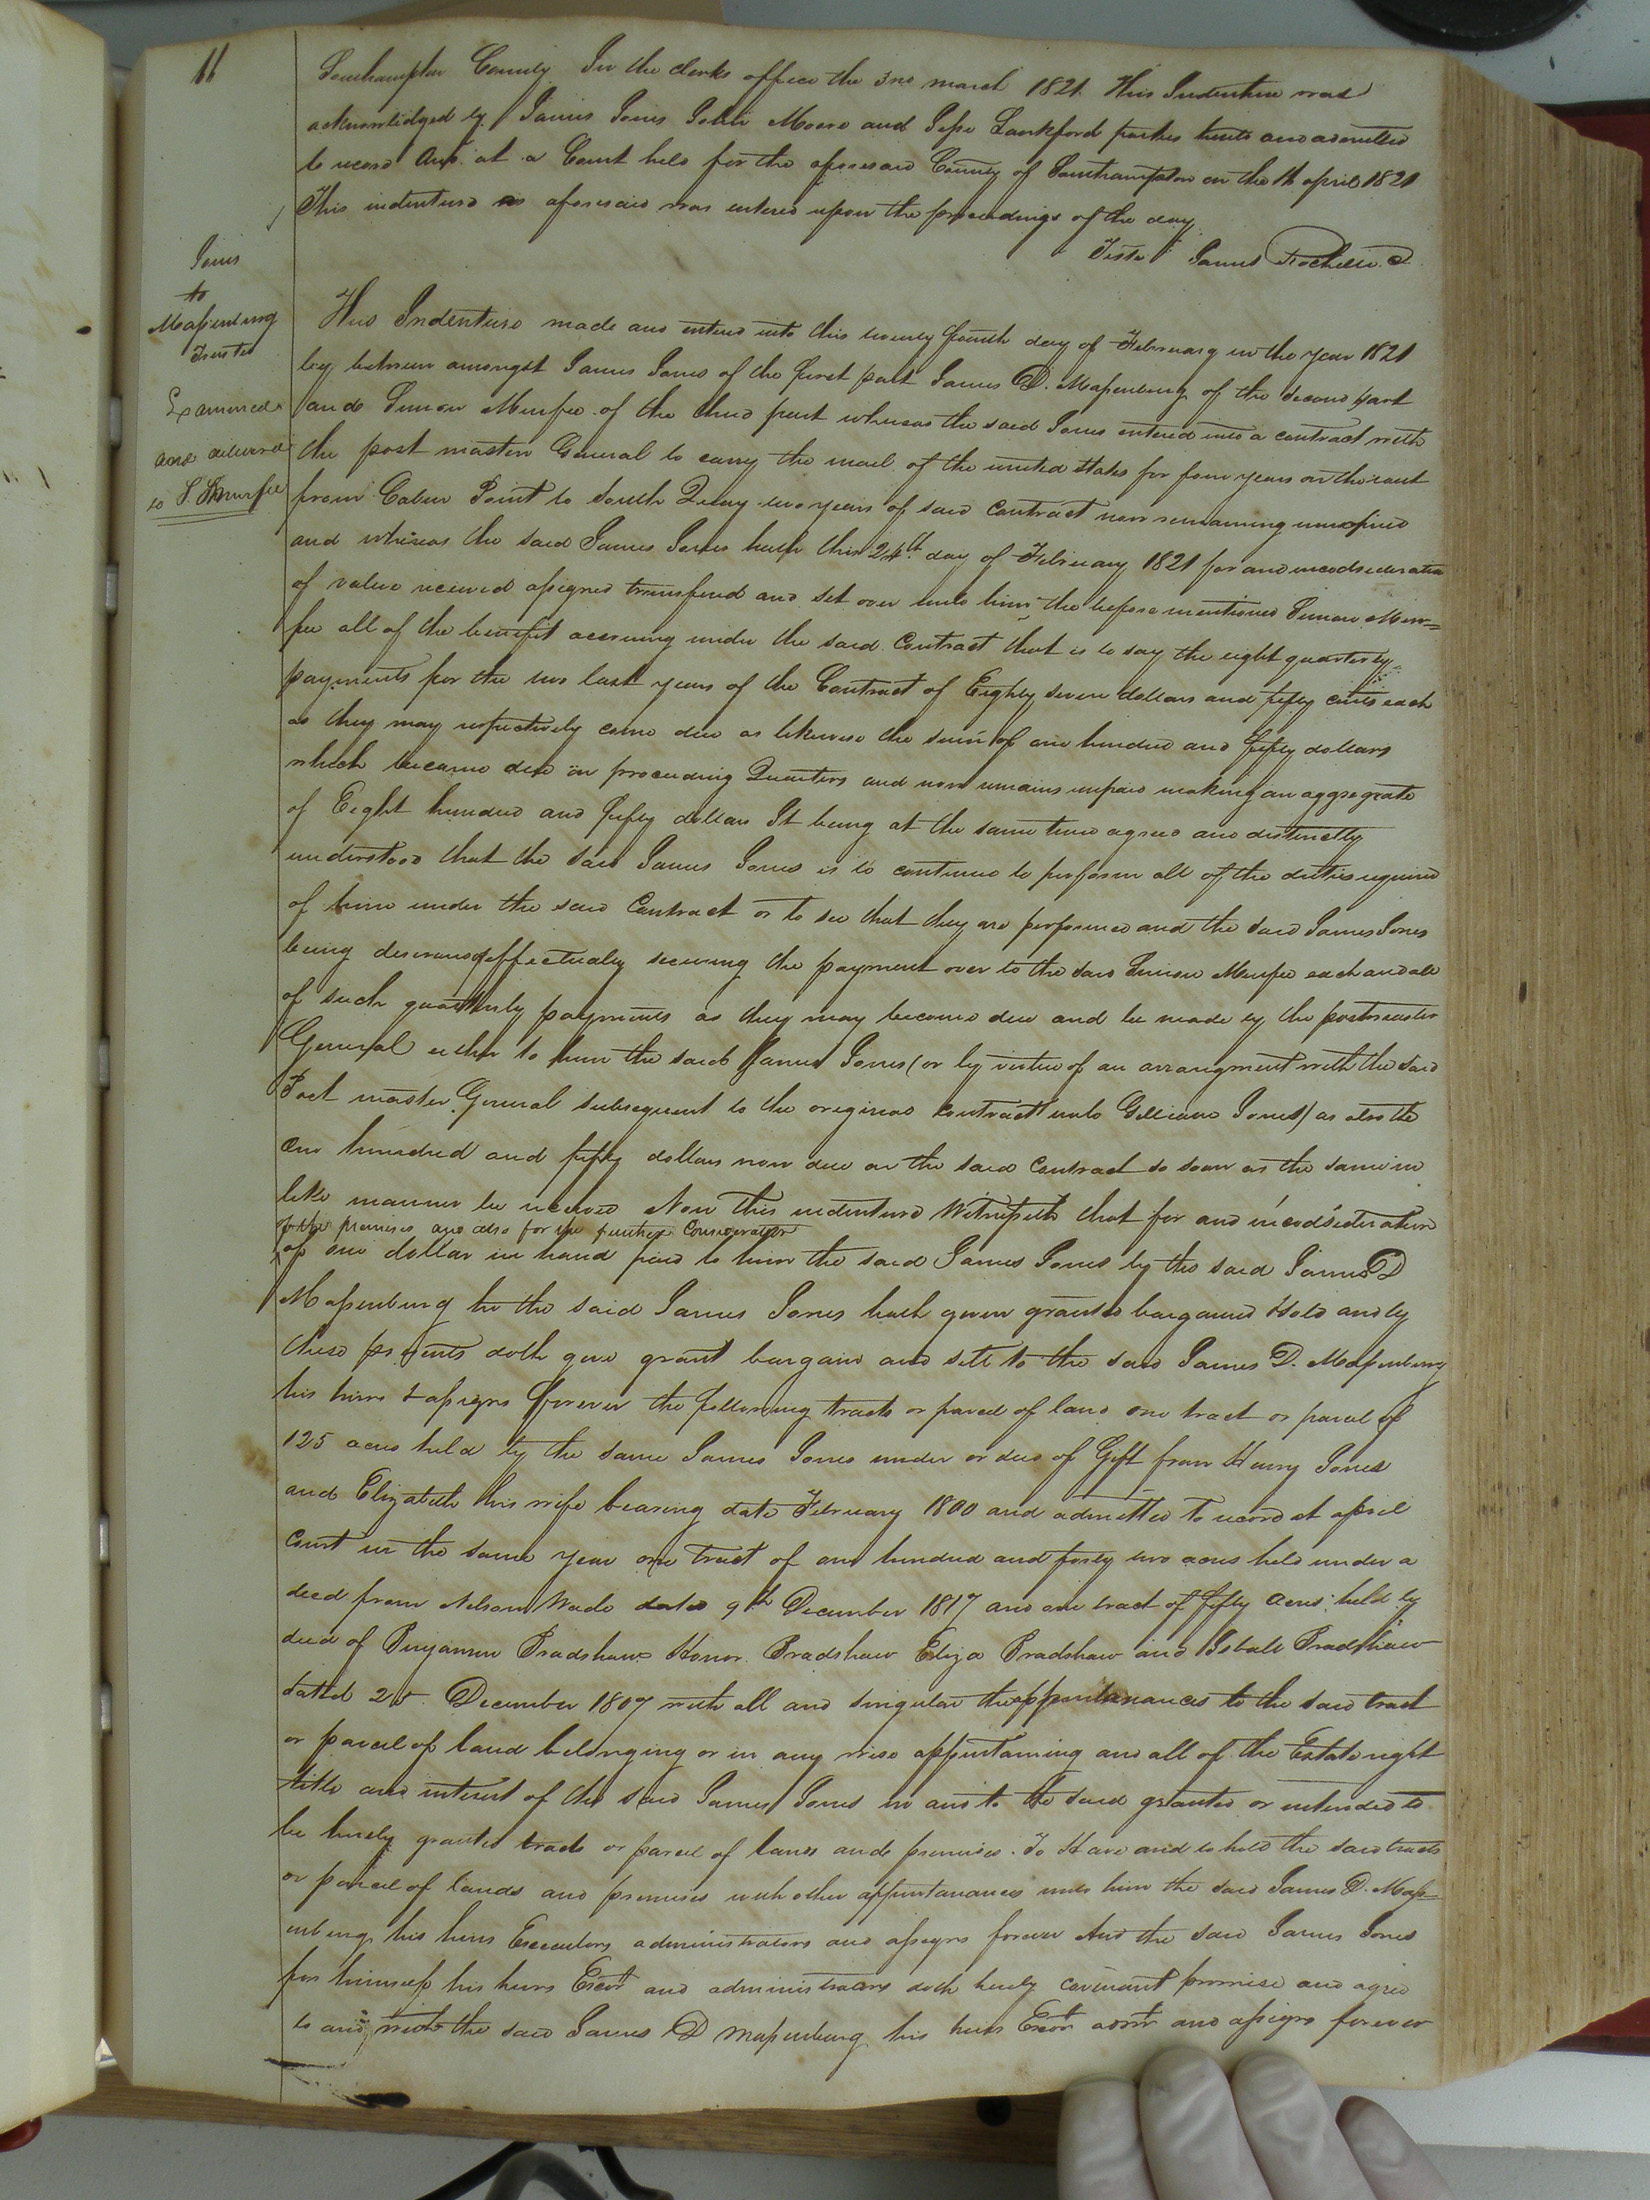 11
Southampton County In the clerks office the 3rd march 1821 This Indenture was
acknowledged by James Jones Moore and Jesse Lankford parties hereto and admitted
to record And at a Court held for the aforesaid County of Southampton on the april 1821
This indenture as aforesaid was entered upon the proceedings of the day
Teste James Rochelle
Jones
to
Massenburg
Trustee
Examined
and delivered
to S. Murfee
This Indenture made and entered into this twenty fourth day of February in the year 1821
by between amongst James Jones of the first part James D. Massenburg of the second part
and Simon Murfee of the third part whereas the said Jones entered into a contract with
the post master General to carry the mail of the united States for four years on the rout
from Cabin Point to South Quay two years of said Contract now remaining unexpired
and whereas the said James Jones hath this 24th day of February 1821 for and in
of value received assigned transfered and set over unto him the before mentioned Simon Mur=
fee all of the benifit accruing under the said Contract that is to say the eight quarterly
payments for the two last years of the Contract of Eighty seven dollars and fifty cents each
as they may respectively come due as likewise the sum of one hundred and fifty dollars
which became due on preceeding Quarters and now remains unpaid making an aggregate
of Eight hundred and fifty dollars It being at the same time agreed and distinctly
understood that the said James Jones is to continue to perform all of the duties required
of him under the said Contract or to see that they are performed and the said James Jones
being desirous of effectually securing the payment over to the said Simon Murfee each and all
of such quarterly payments as they may become due and be made by the postmaster
General either to him the said James Jones (or by virtue of an arrangment with the said
Post master General subsequent to the original contract unto Jones) as also the
one hundred and fifty dollars now due on the said Contract so soon as the same in
like manner be received Now this indenture Witnesseth that for and in
of the premises and also for the further Consideration
of one dollar in hand paid to him the said James Jones by the said James D
Massenburg he the said James Jones hath given granted bargained sold and by
these presents doth give grant bargain and sell to the said James D. Massenburg
his heirs & assigns forever the following tracts or parcel of land one tract or parcel of
125 acres held by the same James Jones under or deed of Gift from Henry Jones
and Elizabeth his wife bearing date February 1800 and admitted to record at april
Court in the same year one tract of one hundred and forty two acres held under a
deed from Nelson Wade dated 9th December 1817 and one tract of fifty acres held by
deed of Benjamin Bradshaw Honor Bradshaw Eliza Bradshaw and Bradshaw
dated December 1807 with all and singular the appurtenances to the said tract
or parcel of land belonging or in any wise appurtaining and all of the Estate right
title and interest of the said James Jones in and to the said granted or intended to
be hereby granted tracts or parcel of lands and premises. To Have and to hold the said tracts
or parcel of lands and premises with other appurtanances unto him the said James D. Mass=
enburg his heirs Executors administrators and assigns forever And the said James Jones
for himself his heirs Exors and administrators doth hereby covenant promise and agree
to and with the said James D Massenburg his heirs Exors admrs and assigns forever